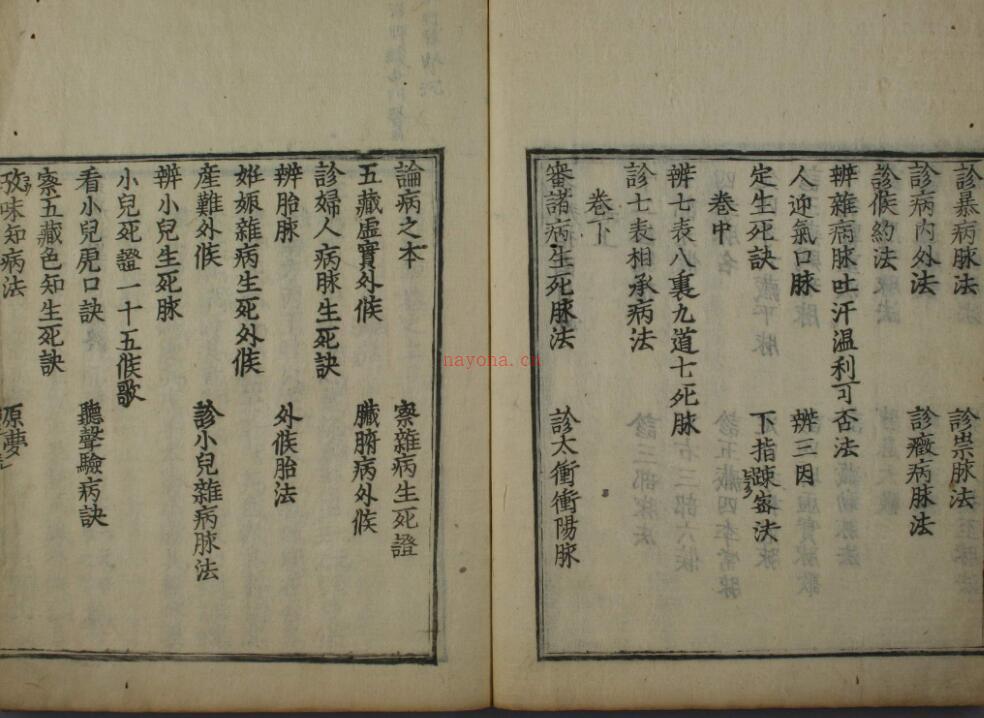 診暴病脉法 診祟脉法
診病內外法 診癥病脉法
診候約法
辨雜病脉吐汗温利可否法
人迎氣口脉 辨三因
定生死訣 下指踈密法
卷中
辨七表八裏九道七死脉
診七表相承病法
卷下
審諸病生死脉法 診太衝衝陽脉
論病之本 察雜病生死證
五藏虛實外候 臟腑病外候
診婦人病脉生死訣
辨胎脉 外候胎法
妊娠雜病生死外候
產難外候 診小兒雜病脉法
辨小兒生死脉
小兒死證一十五候歌
看小兒虎口訣 聽聲驗病訣
察五藏色知生死訣
攷味知病法 原夢
nayona.cn